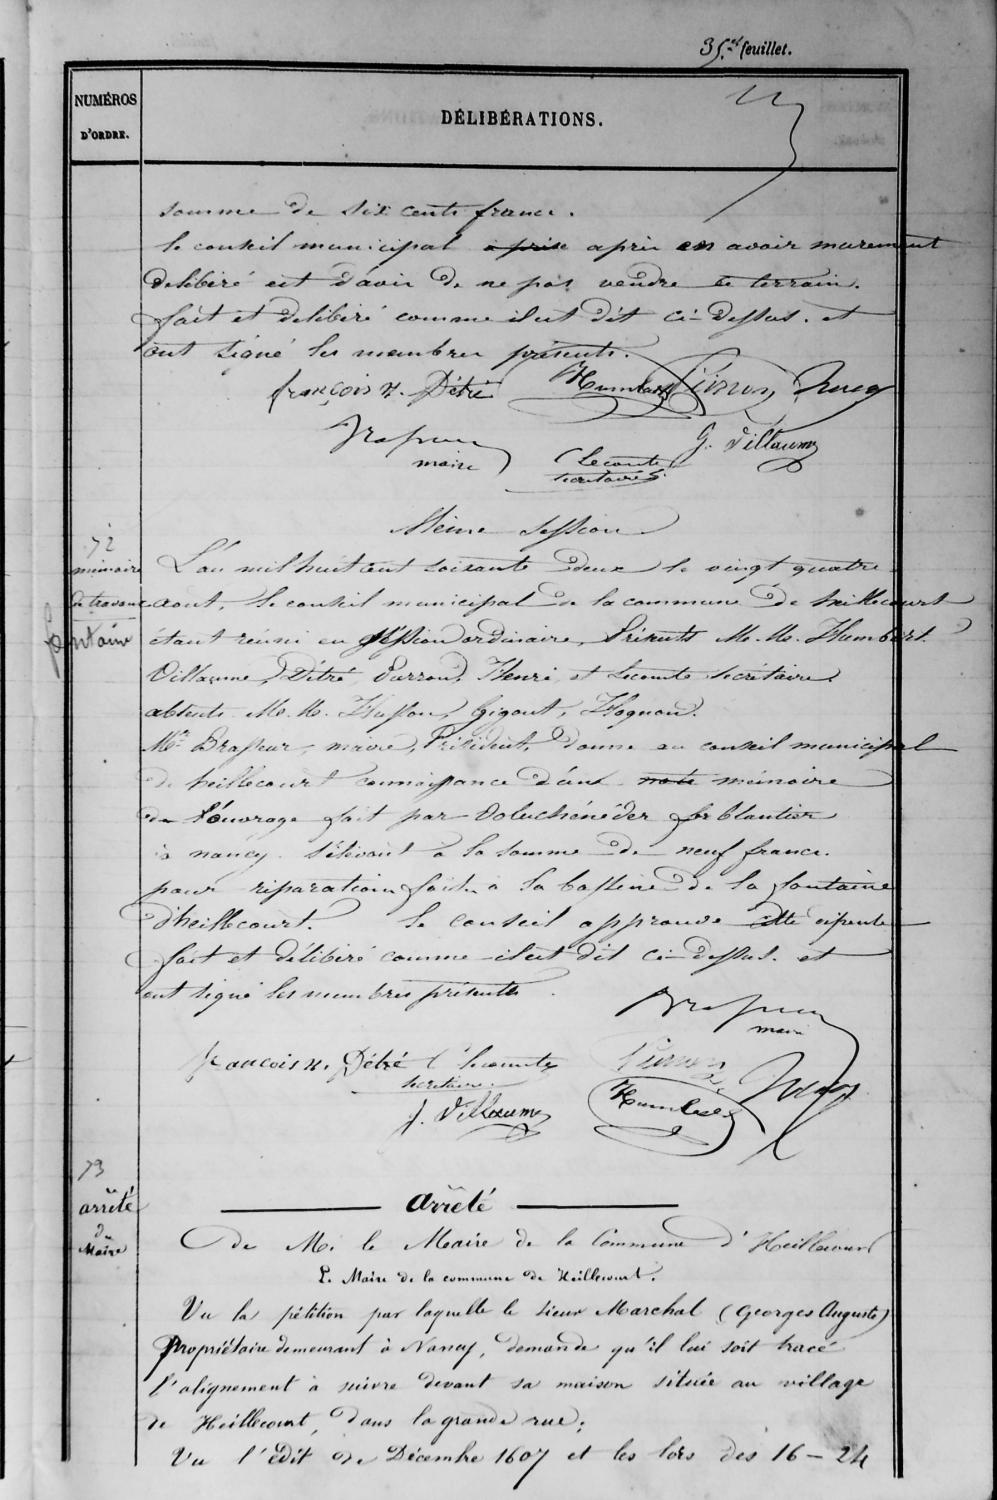 35.et feuillet.
NUMÉROS
D'ORDRE.
DÉLIBÉRATIONS.
somme de six cents francs.
le conseil municipal a prise après en avoir murement
délibéré est d'avis de ne pas vendre ce terrain.
fait et délibéré comme il est dit ci-dessus. et
ont signé les membres présents.
françois N. Détré Humbert Pierron
maire
Lecomte
secrétaire
G. Villaume
Meme session
72
mémoire
de travaux
fontaine
L'an mil huit cent soixante deux le vingt quatre
aout, le conseil municipal de la commune de heillecourt
étant réuni en session ordinaire, Présents M. M. Humbert.
Villaume, Détré, Henri, et Lecomte secrétaire.
absents M. M. Husson, Gigout, Hognon.
Mr Brasseur, maire, Président, donne au conseil municipal
de heillecourt connaissance d'un note mémoire
de l'ouvrage fait par ferblantier
à nancy. s'élevant à la somme de neuf francs.
pour réparation faite à la bassine de la fontaine
d'heillecourt. le conseil approuve cette dépense
fait et délibéré comme il est dit ci-dessus. et
ont signé les membres présents.
Brasseur
maire
françois N. Détré Lecomte
secrétaire
Pierron
Humbert
J. Villaume
73
arrêté
du
Maire
Arrêté
De M. le Maire de la Commune d'Heillecourt
Le Maire de la commune de Heillecourt.
Vu la pétition par laquelle le sieur Marchal (Georges Auguste)
Propriétaire demeurant à Nancy, demande qu'il lui soit tracé
l'alignement à suivre devant sa maison située au village
de Heillecourt, dans la grande rue;
Vu l'édit de Décembre 1607 et les lois des 16 - 24